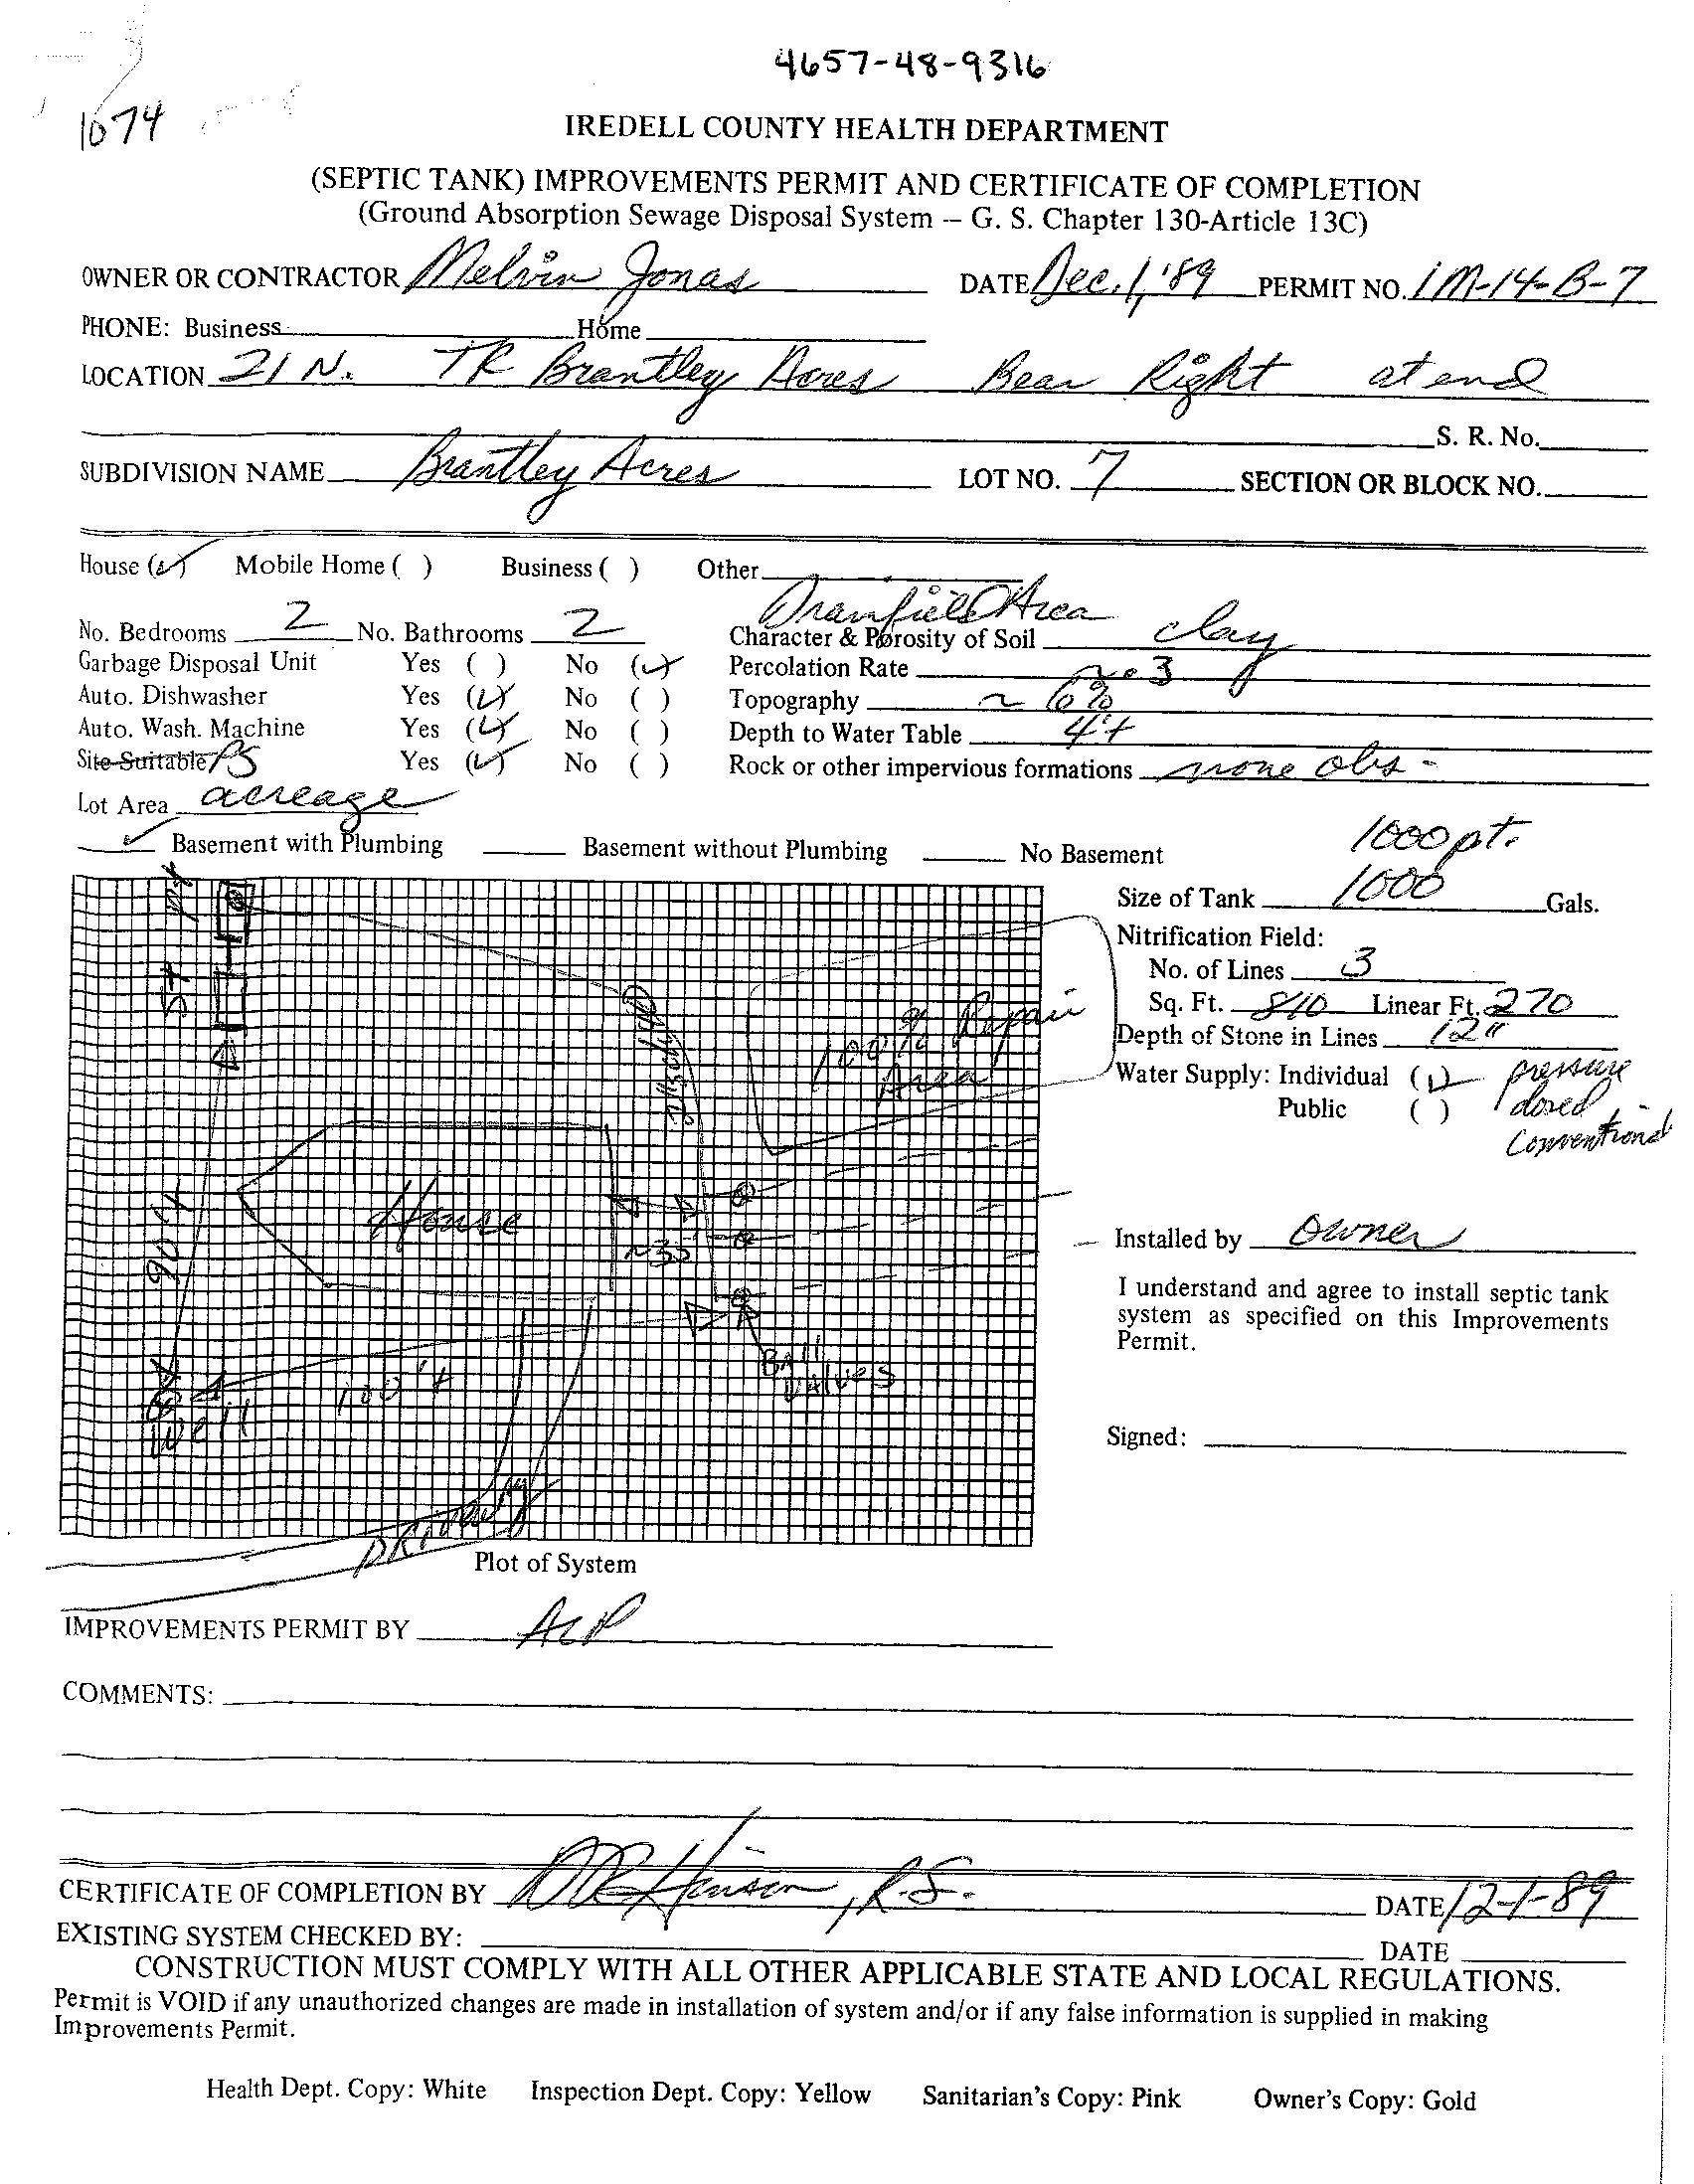 4657-48-9316
1074
IREDELL COUNTY HEALTH DEPARTMENT
(SEPTIC TANK) IMPROVEMENTS PERMIT AND CERTIFICATE OF COMPLETION
(Ground Absorption Sewage Disposal System – G. S. Chapter 130-Article 13C)
OWNER OR CONTRACTOR Melvin Jonas DATE Dec. 1, '89 PERMIT NO. 1M-14-B-7
PHONE: Business Home
LOCATION 21 N. TR Brantley Acres Bear Right at end
S. R. No.
SUBDIVISION NAME Brantley Acres LOT NO. 7 SECTION OR BLOCK NO.
House (✓) Mobile Home ( ) Business ( ) Other
Drainfield Area
No. Bedrooms 2 No. Bathrooms 2 Character & Porosity of Soil clay
Garbage Disposal Unit Yes ( ) No (✓) Percolation Rate ~.3
Auto. Dishwasher Yes (✓) No ( ) Topography ~ 6%
Auto. Wash. Machine Yes (✓) No ( ) Depth to Water Table 4'+
Site Suitable PS Yes (✓) No ( ) Rock or other impervious formations none obs -
Lot Area acreage
✓ Basement with Plumbing Basement without Plumbing No Basement
1000 pt.
Size of Tank 1000 Gals.
Nitrification Field:
No. of Lines 3
Sq. Ft. 810 Linear Ft. 270
Depth of Stone in Lines 12"
Water Supply: Individual (✓) pressure
Public ( ) dosed
Conventional
pt
St
100% Repair
Area
90'+
House
~35
Ball
Valves
100'+
Well
Driveway
Installed by Owner
I understand and agree to install septic tank
system as specified on this Improvements
Permit.
Signed:
Plot of System
IMPROVEMENTS PERMIT BY ACP
COMMENTS:
CERTIFICATE OF COMPLETION BY DR Hinson, R.S. DATE 12-1-89
EXISTING SYSTEM CHECKED BY: DATE
CONSTRUCTION MUST COMPLY WITH ALL OTHER APPLICABLE STATE AND LOCAL REGULATIONS.
Permit is VOID if any unauthorized changes are made in installation of system and/or if any false information is supplied in making
Improvements Permit.
Health Dept. Copy: White Inspection Dept. Copy: Yellow Sanitarian's Copy: Pink Owner's Copy: Gold